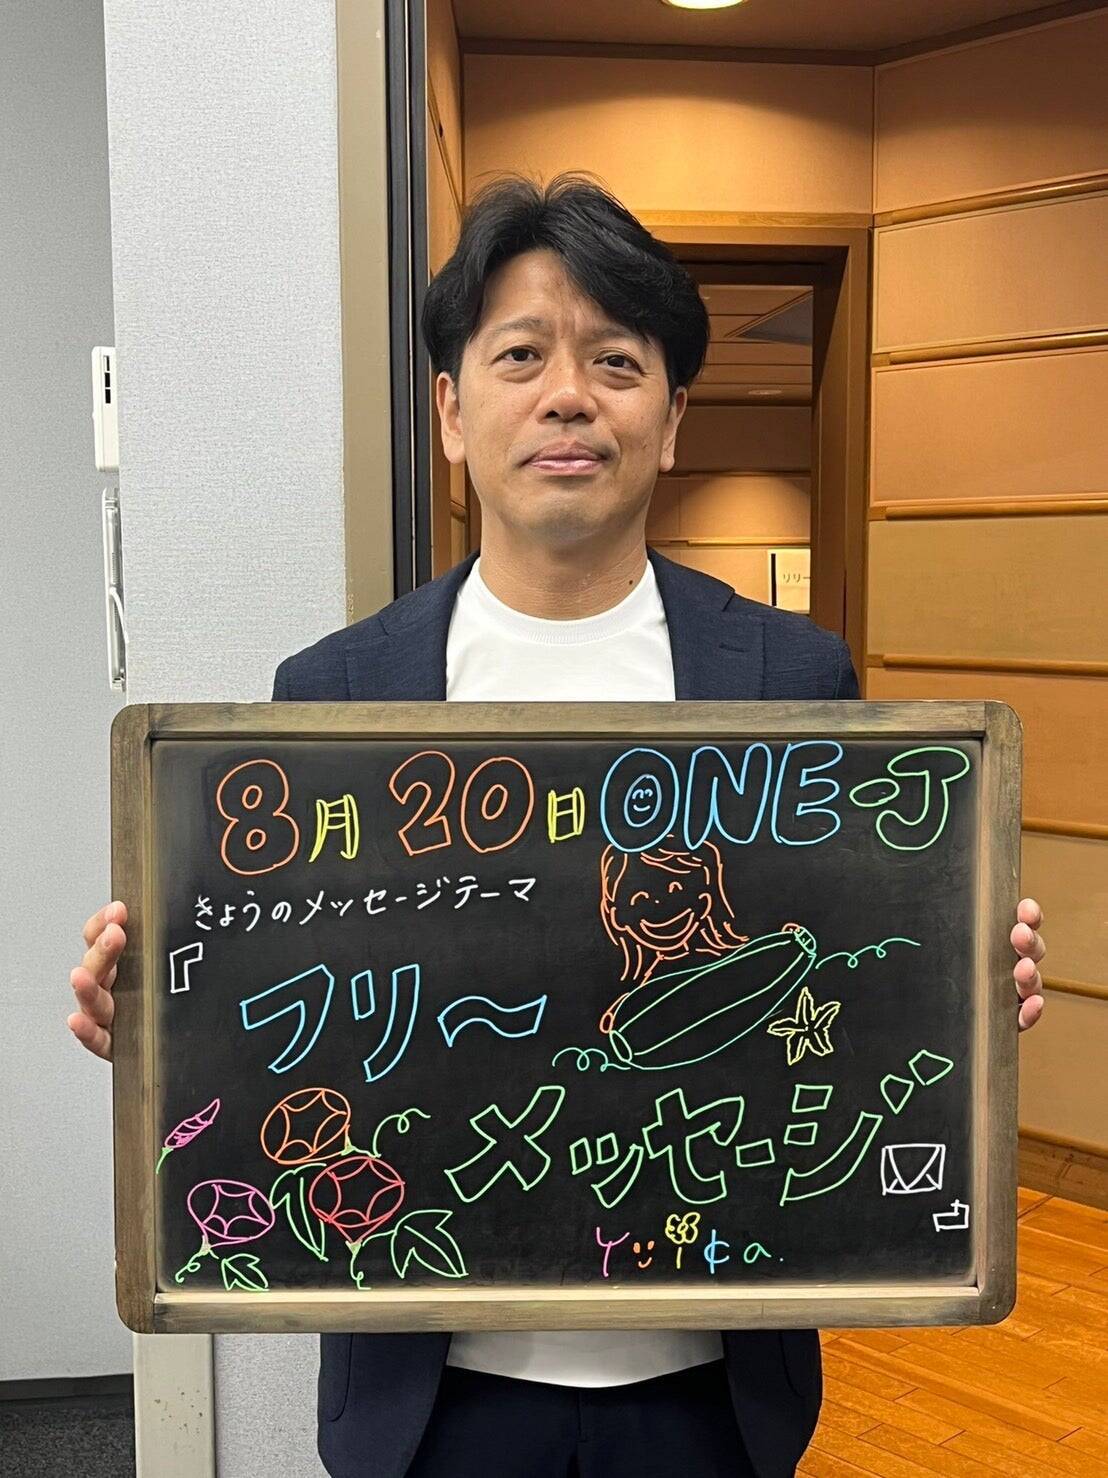 8月20日 ONE-J
きょうのメッセージテーマ
『フリー
メッセージ』
Yuika.
リリー